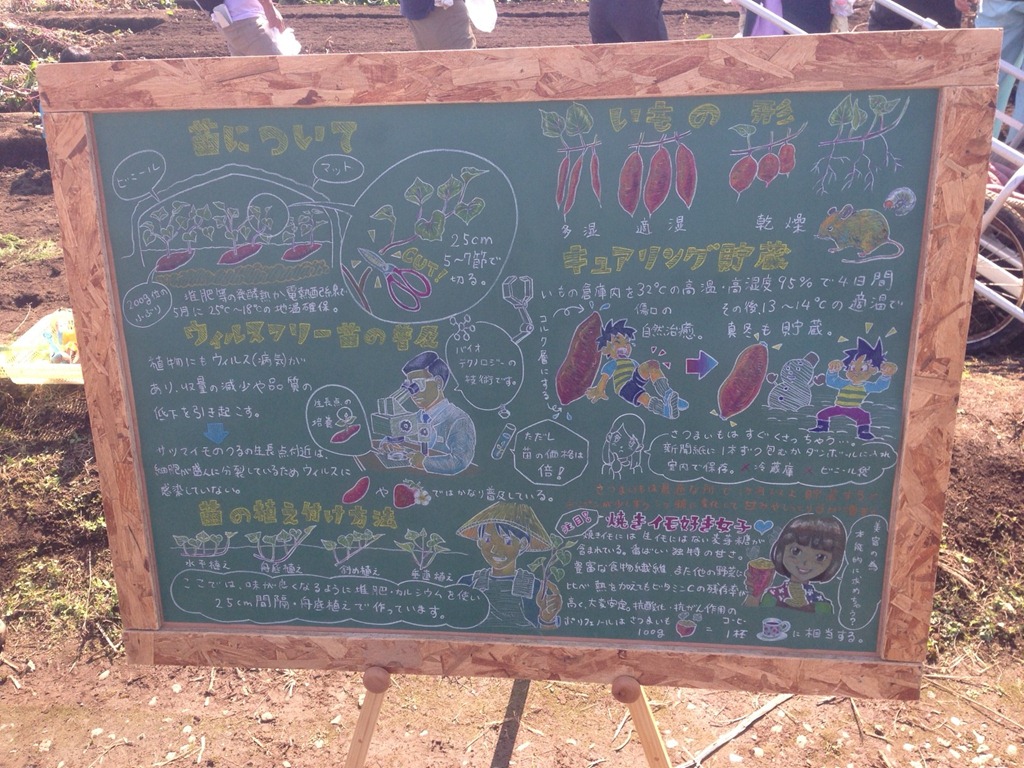 苗について
ビニール
マット
25cm
5~7節で
切る。
CUT!
200g位の
小ぶり
堆肥等の発酵熱か電熱配線で
5月に25℃~18℃の地温確保。
ウィルスフリー苗の普及
植物にもウィルス(病気)が
あり、収量の減少や品質の
低下を引き起こす。
サツマイモのつるの生長点付近は、
細胞が盛んに分裂しているためウィルスに
感染していない。
生長点の
培養
バイオ
テクノロジーの
技術です。
ただし
苗の価格は
倍!
や
ではかなり普及している。
苗の植え付け方法
水平植え
舟底植え
釣り植え
垂直植え
ここでは、味が良くなるように堆肥・カルシウムを使い
25cm間隔・舟底植えで作っています。
いもの形
多湿
適湿
乾燥
キュアリング貯蔵
いもの倉庫内を32℃の高温・高湿度95%で4日間
コルク層にする
傷口の
自然治癒。
その後13~14℃の適温で
真冬も貯蔵。
さつまいもはすぐくさっちゃう…
新聞紙に1本ずつ包むかダンボールに入れ
室内で保存。×冷蔵庫 ×ビニール袋
注目!!
焼きイモ好き女子
焼きイモには生イモにはない麦芽糖が
含まれている。香ばしい独特の甘さ。
豊富な食物繊維 また他の野菜に
比べ熱を加えてもビタミンCの残存率が
高く、大変安定。抗酸化・抗がん作用の
ポリフェノールはさつまいも
100g
=
コーヒー
1杯
に相当する。
美容の為
本能的に求めちゃう?